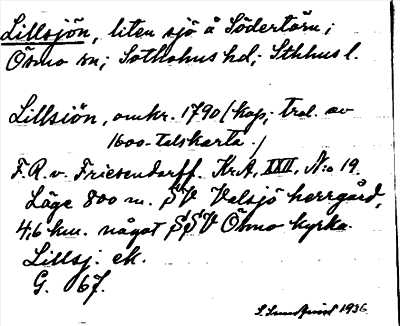 Lillsjön, liten sjö å Södertörn;
Ösmo sn; Sotholms hd; Sthlms l.
Lillsiön, omkr. 1790 (kop; trol. av
1600-talskarta.)
F. R. v. Friesendorff. KrA, XXII, N:o 19.
Läge 800 m. SV Valsjö herrgård,
4,6 km. något SSV Ösmo kyrka.
Lillsj. ek.
G. 67.
S. Sundqvist 1936